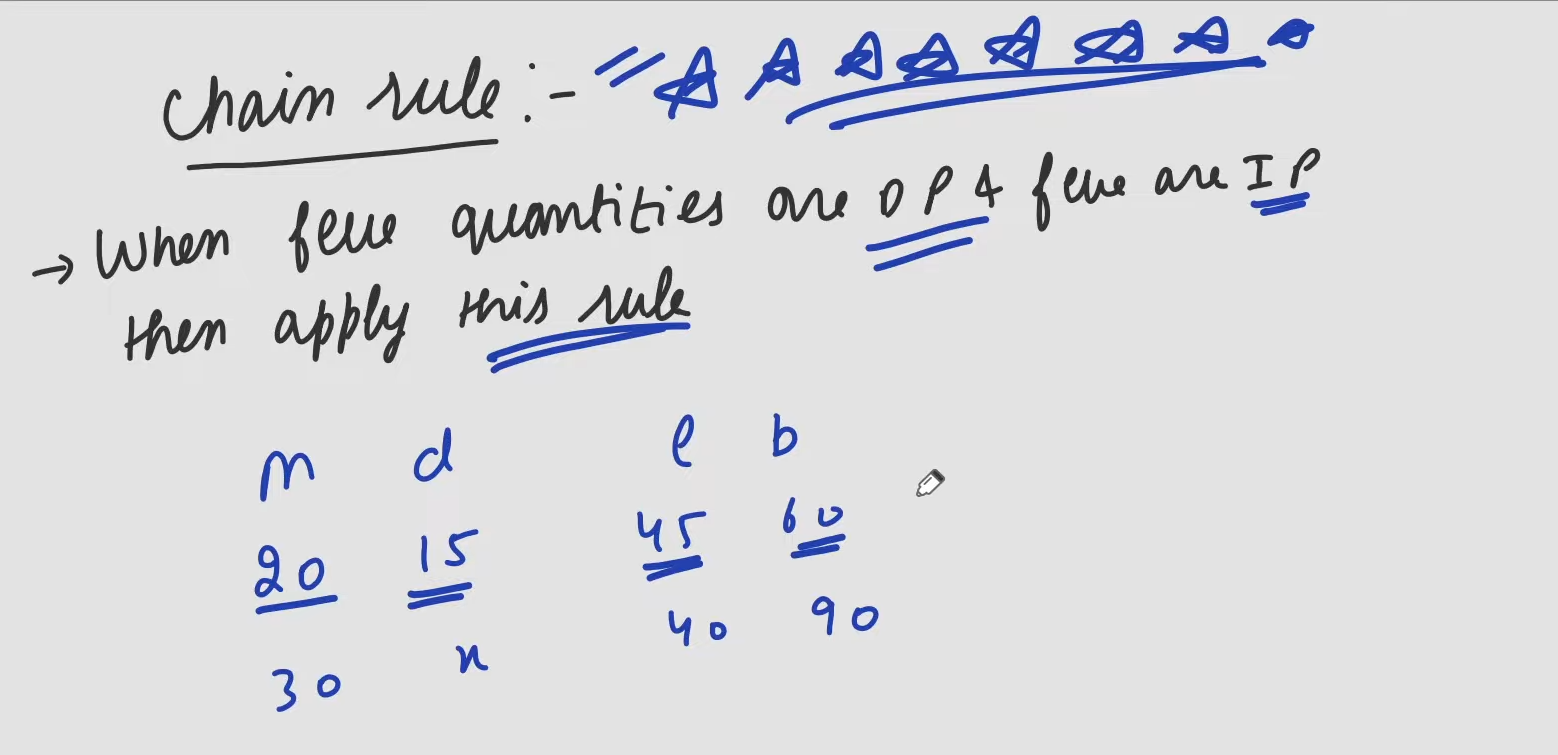 Chain rule :-
→ When few quantities are DP & few are IP
then apply this rule
m d l b
20 15 45 60
30 x 40 90